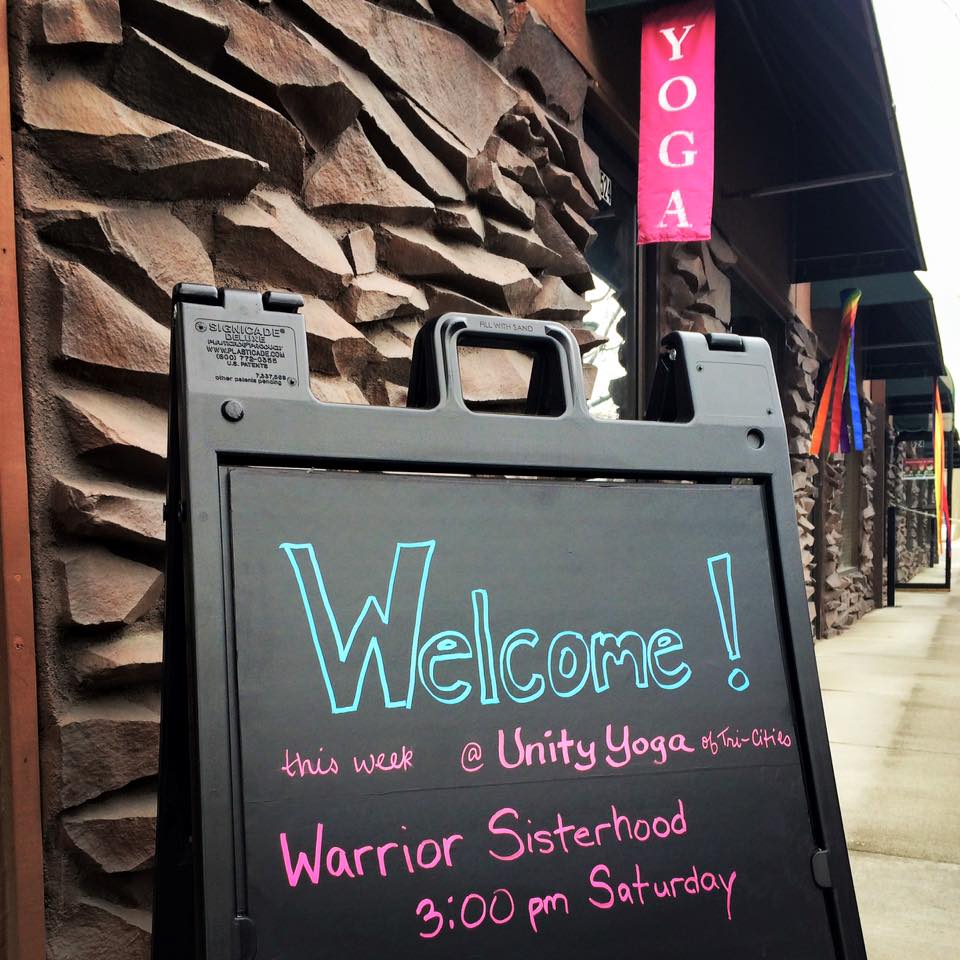 YOGA
524
FILL WITH SAND
SIGNICADE®
DELUXE
WWW.PLASTICADE.COM
(800) 772-0355
U.S. PATENTS
7,337,568
other patents pending
Welcome!
this week @ Unity Yoga of Tri-Cities
Warrior Sisterhood
3:00 pm Saturday